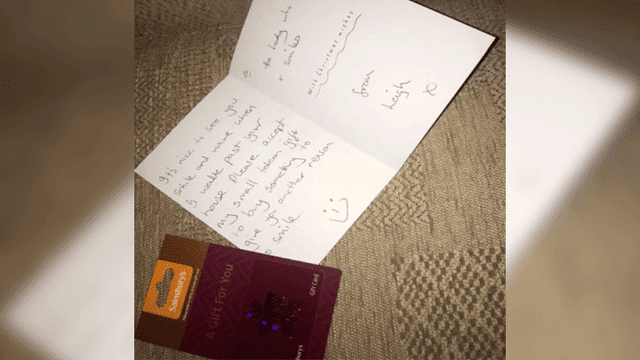 the lady who
+ smiles
With Christmas Wishes
from
Leigh
x
It's nice to see you
smile and wave when
I walk past your
house Please accept
my small token gift
to buy something to
give you another reason
to smile
Sainsbury's
A Gift For You
Gift Card